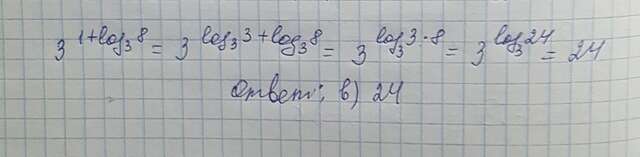 3^{1+log₃8} = 3^{log₃3+log₃8} = 3^{log₃3·8} = 3^{log₃24} = 24
Ответ: в) 24